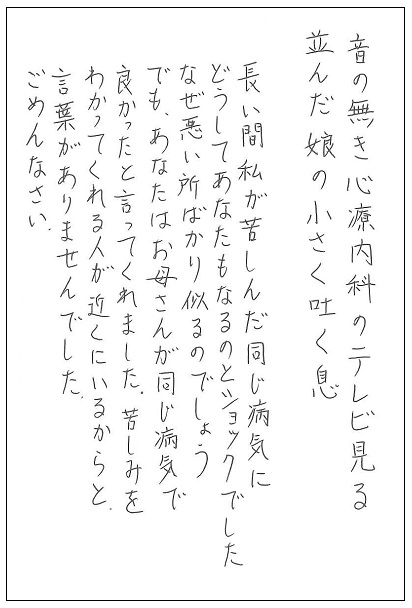 音の無き心療内科のテレビ見る
並んだ娘の小さく吐く息
長い間私が苦しんだ同じ病気に
どうしてあなたもなるのとショックでした
なぜ悪い所ばかり似るのでしょう
でも、あなたはお母さんが同じ病気で
良かったと言ってくれました。苦しみを
わかってくれる人が近くにいるからと。
言葉がありませんでした。
ごめんなさい。